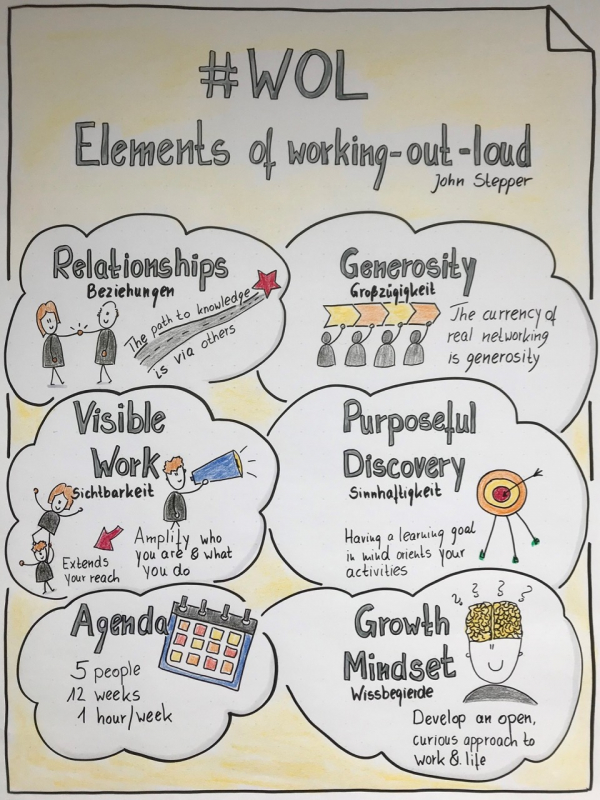 #WOL
Elements of working-out-loud
John Stepper
Relationships
Beziehungen
The path to knowledge
is via others
Generosity
Großzügigkeit
The currency of
real networking
is generosity
Visible
Work
Sichtbarkeit
Extends
your reach
Amplify who
you are & what
you do
Purposeful
Discovery
Sinnhaftigkeit
Having a learning goal
in mind orients your
activities
Agenda
5 people
12 weeks
1 hour/week
Growth
Mindset
Wissbegierde
? ? ? ?
Develop an open,
curious approach to
work & life